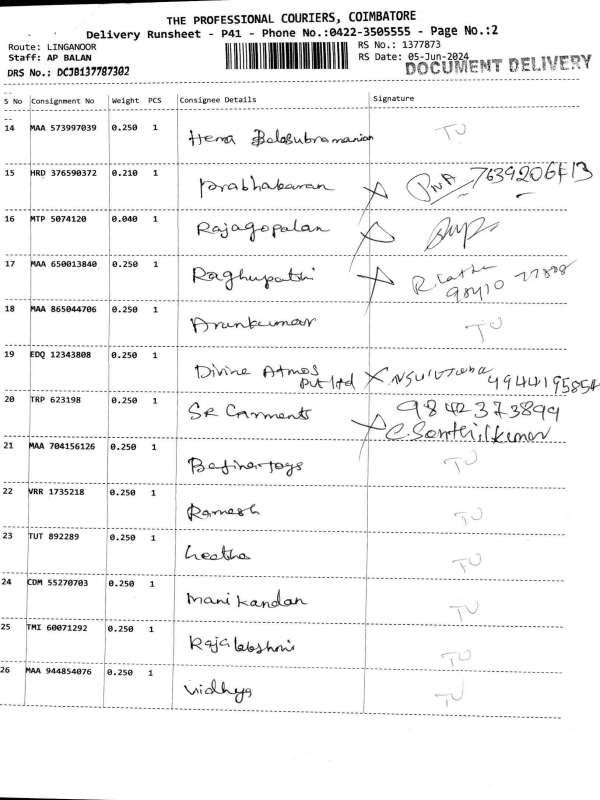 THE PROFESSIONAL COURIERS, COIMBATORE
Delivery Runsheet - P41 - Phone No.:0422-3505555 - Page No.:2
Route: LINGANOOR
RS No.: 1377873
Staff: AP BALAN
RS Date: 05-Jun-2024
DRS No.: DCJB137787302
DOCUMENT DELIVERY
S No Consignment No Weight PCS Consignee Details Signature
14 MAA 573997039 0.250 1 Hema Balasubramanian TU
15 HRD 376590372 0.210 1 Prabhakaran
16 MTP 5074120 0.040 1 Rajagopalan
17 MAA 650013840 0.250 1 Raghupathi R. Latha
98410 77808
18 MAA 865044706 0.250 1 Arunkumar TU
19 EDQ 12343808 0.250 1 Divine Atmos
Pvt ltd
20 TRP 623198 0.250 1 SR Garments 9842373899
C. Senthilkumar
21 MAA 704156126 0.250 1 TU
22 VRR 1735218 0.250 1 Ramesh TU
23 TUT 892289 0.250 1 Leetha TU
24 CDM 55270703 0.250 1 Manikandan TU
25 TMI 60071292 0.250 1 Rajalakshmi TU
26 MAA 944854076 0.250 1 Vidhya TU